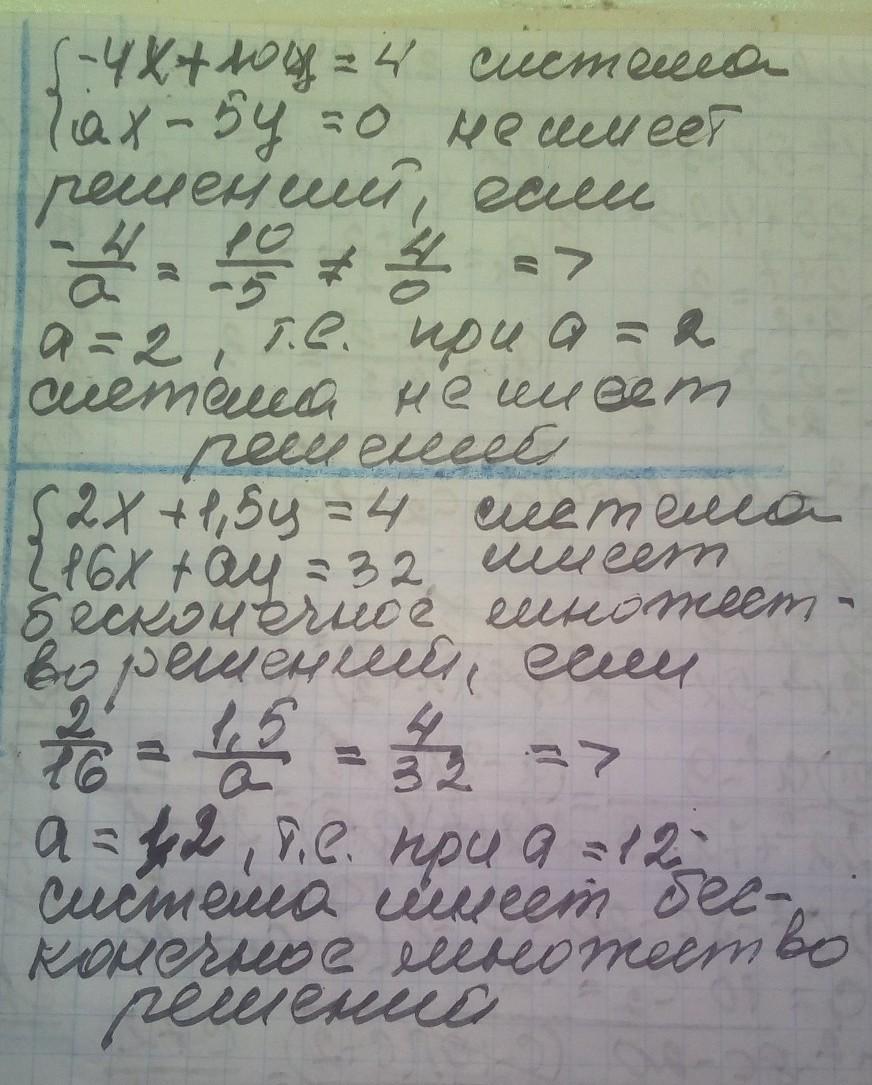 {-4x+10y=4 система
{ax-5y=0 не имеет
решений, если
-4/a = 10/-5 ≠ 4/0 =>
a=2, т.е. при a=2
система не имеет
решений
{2x+1,5y=4 система
{16x+ay=32 имеет
бесконечное множест-
во решений, если
2/16 = 1,5/a = 4/32 =>
a=12, т.е. при a=12
система имеет бес-
конечное множество
решений